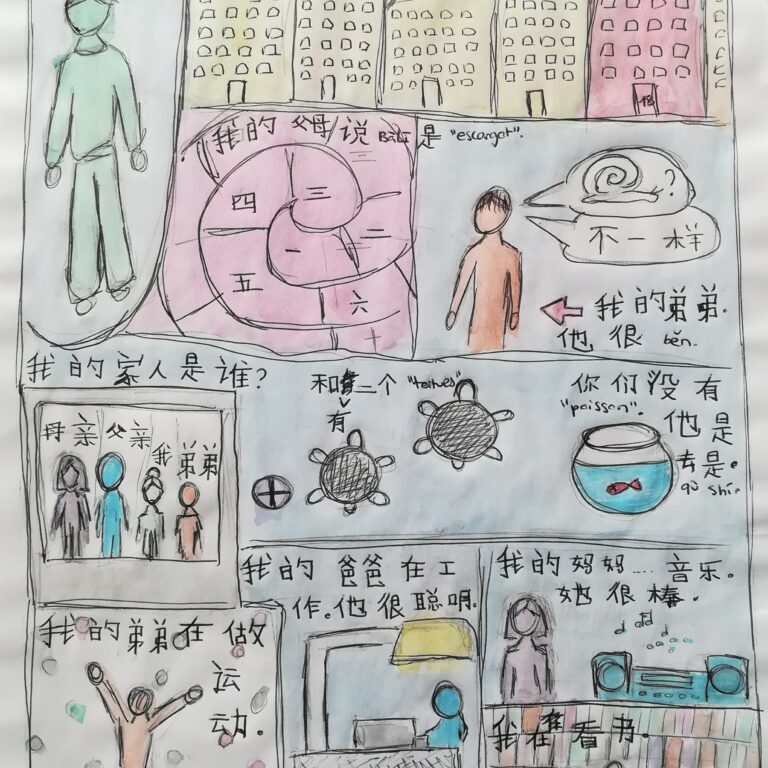 18
我的父母说 Bālí 是 "escargot".
四 三
一 二
五 六
?
不一样
我的弟弟.
他很 běn.
我的家人是谁?
母亲 父亲 我 弟弟
和 二个 "tortues"
有
你们没有
"poisson". 他是
去是。
qù shí.
我的爸爸在工
作.他很聪明.
我的妈妈....音乐.
她很棒.
我的弟弟在做
运
动.
我在看书.